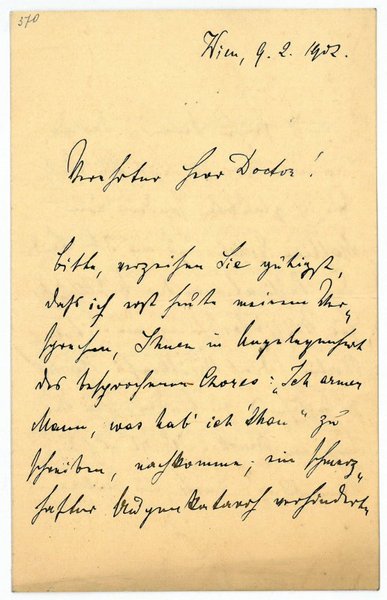 370
Wien, 9. 2. 1902.
Verehrter Herr Doctor!
Bitte, verzeihen Sie gütigst,
daß ich erst heute meinem Ver-
sprechen, Ihnen in Angelegenheit
des besprochenen Chores: „Ich armer
Mann, was hab' ich 'than" zu
schreiben, nachkomme; ein schmerz-
hafter Augenkatarrh verhinderte